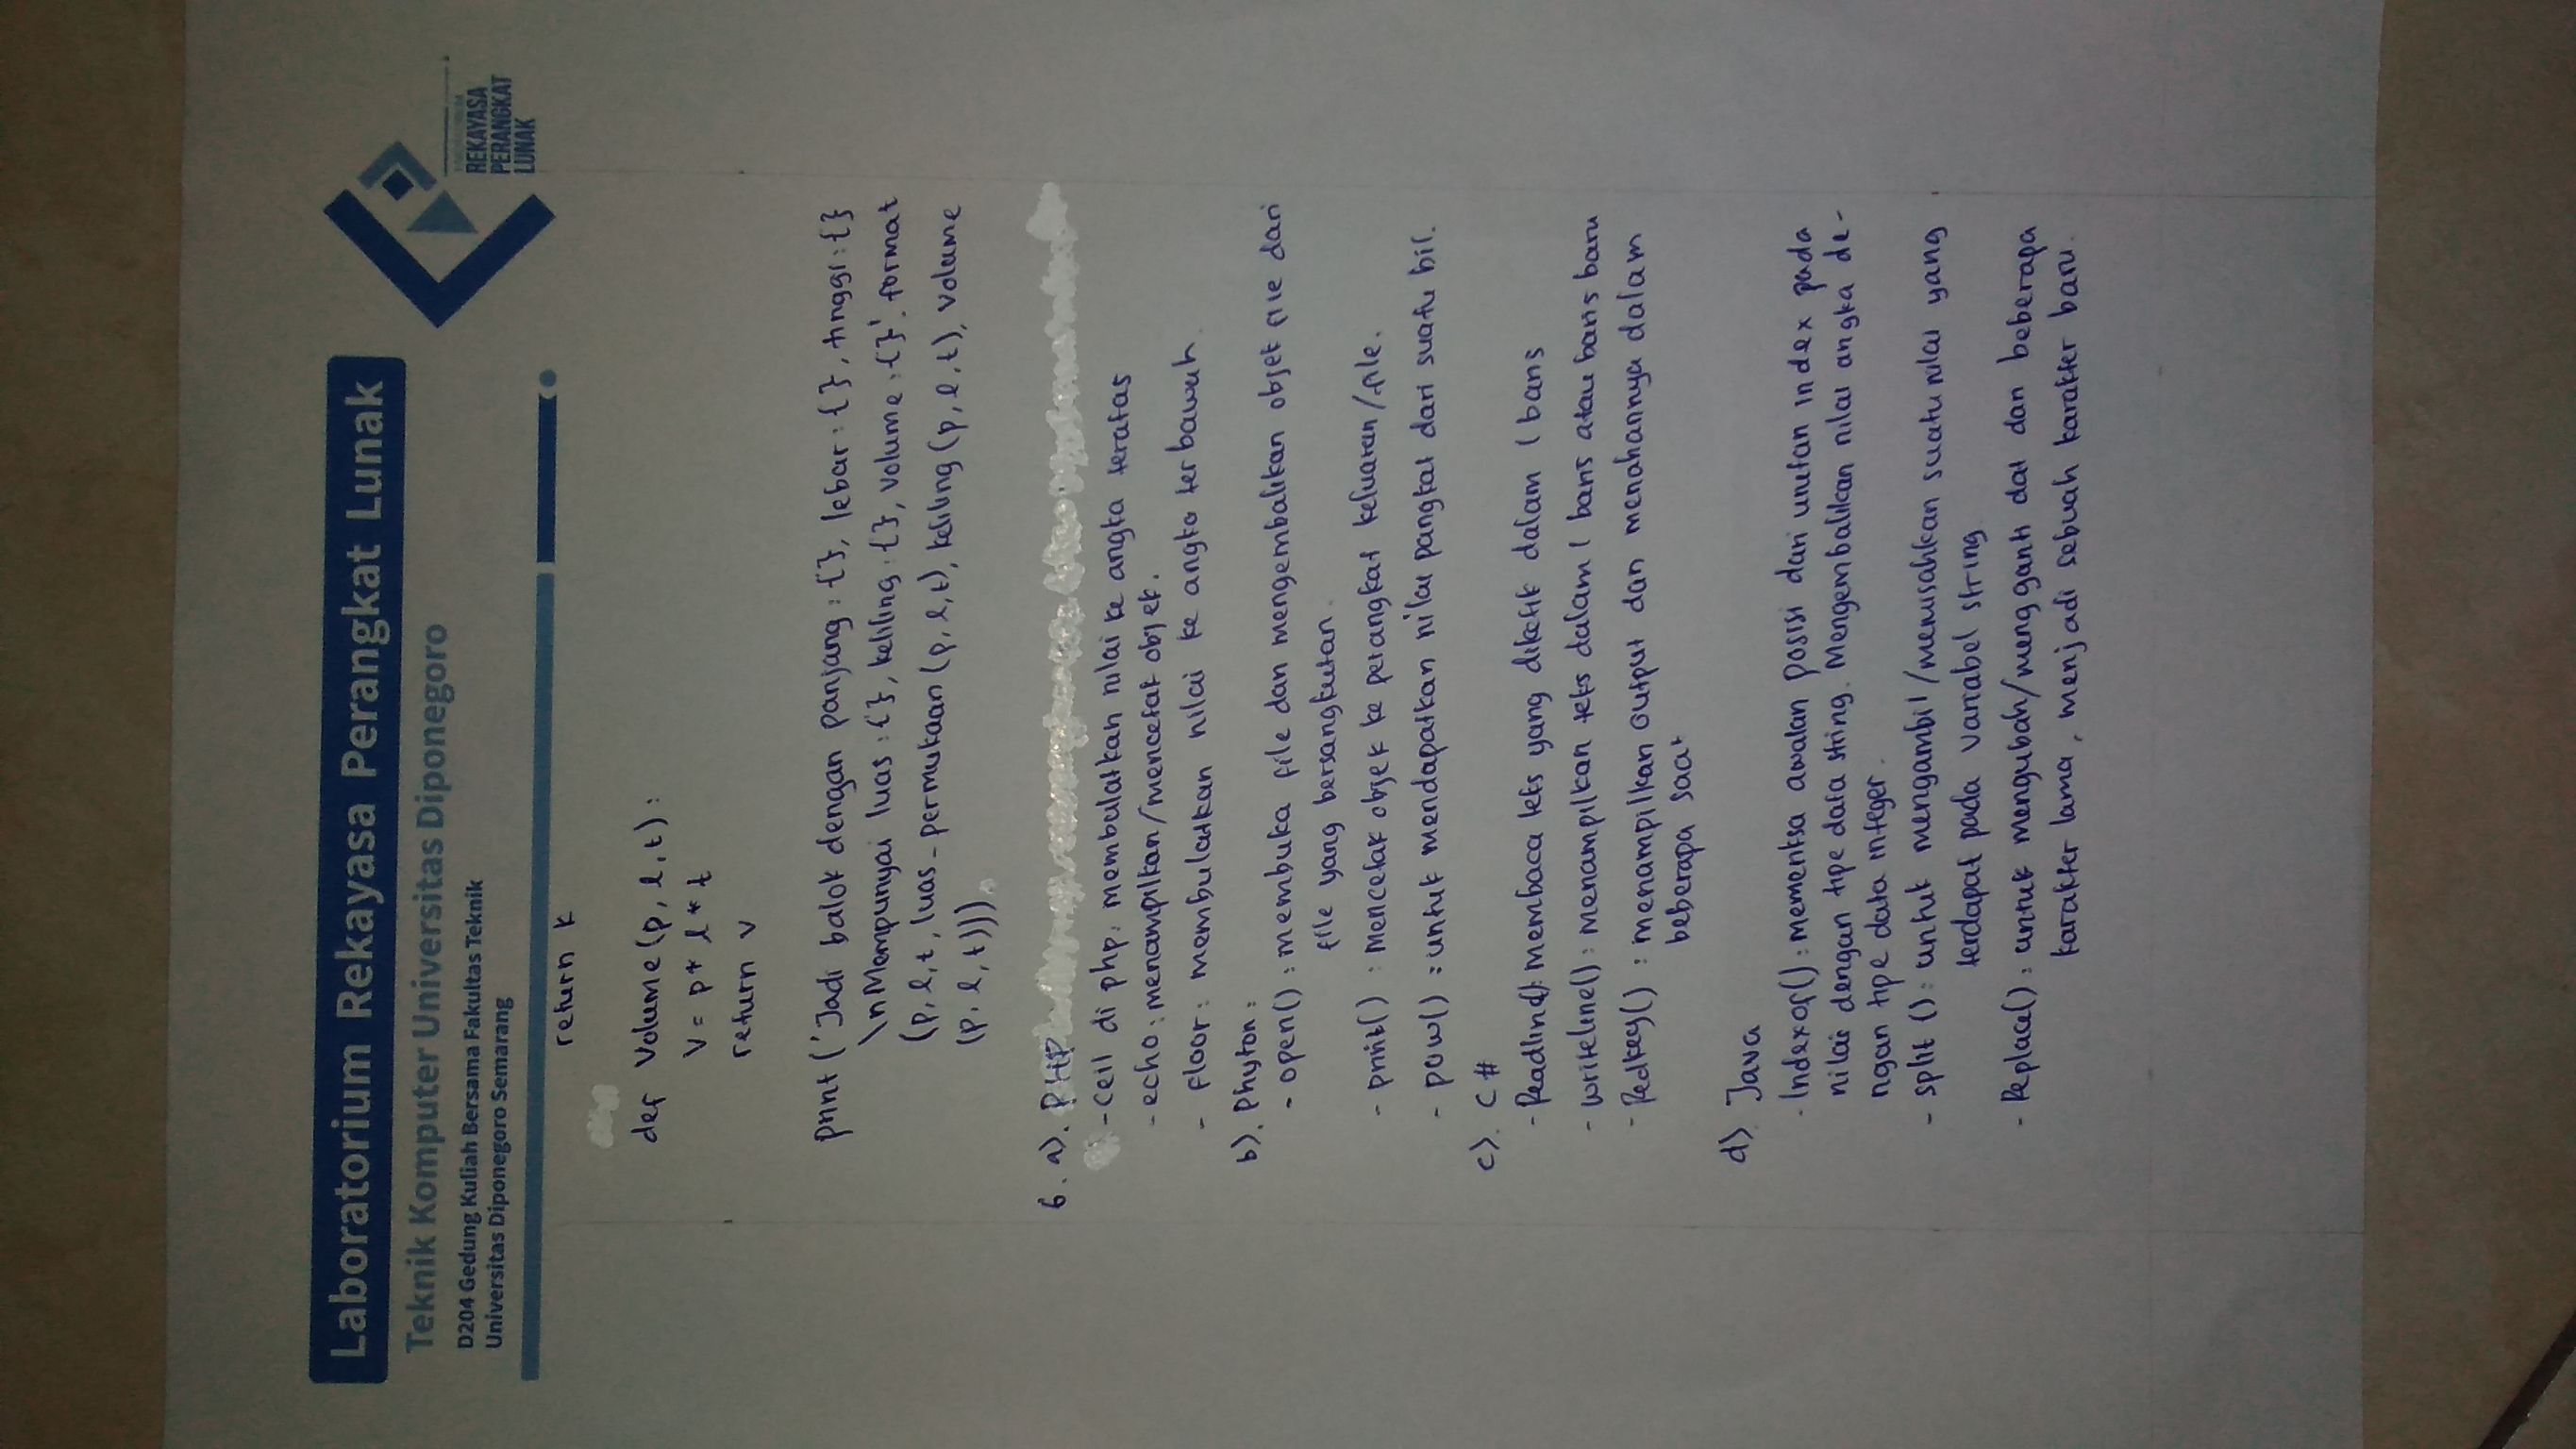 Laboratorium Rekayasa Perangkat Lunak
Teknik Komputer Universitas Diponegoro
D204 Gedung Kuliah Bersama Fakultas Teknik
Universitas Diponegoro Semarang
REKAYASA
PERANGKAT
LUNAK
return k
def volume (p, l, t) :
v = p * l * t
return v
print ('Jadi balok dengan panjang : {}, lebar : {}, tinggi : {}
\nMempunyai luas : {}, keliling : {}, volume : {}'. format
(p, l, t, luas_permukaan (p, l, t), keliling (p, l, t), volume
(p, l, t)))
6. a). PHP
- ceil di php : membulatkan nilai ke angka teratas
- echo : menampilkan/mencetak objek.
- floor : membulatkan nilai ke angka terbawah.
b). Phyton :
- open() : membuka file dan mengembalikan objek file dari
file yang bersangkutan.
- print() : mencetak objek ke perangkat keluaran/file.
- pow() : untuk mendapatkan nilai pangkat dari suatu bil.
c). C#
- Readline() : membaca teks yang diketik dalam 1 baris
- writeline() : menampilkan teks dalam 1 baris atau baris baru
- Redkey() : menampilkan output dan menahannya dalam
beberapa saat
d) Java
- Indexof() : memeriksa awalan posisi dari urutan index pada
nilai dengan tipe data string. Mengembalikan nilai angka de-
ngan tipe data integer.
- split () : untuk mengambil/memisahkan suatu nilai yang
terdapat pada variabel string
- Replace() : untuk mengubah/mengganti dai dan beberapa
karakter lama, menjadi sebuah karakter baru.